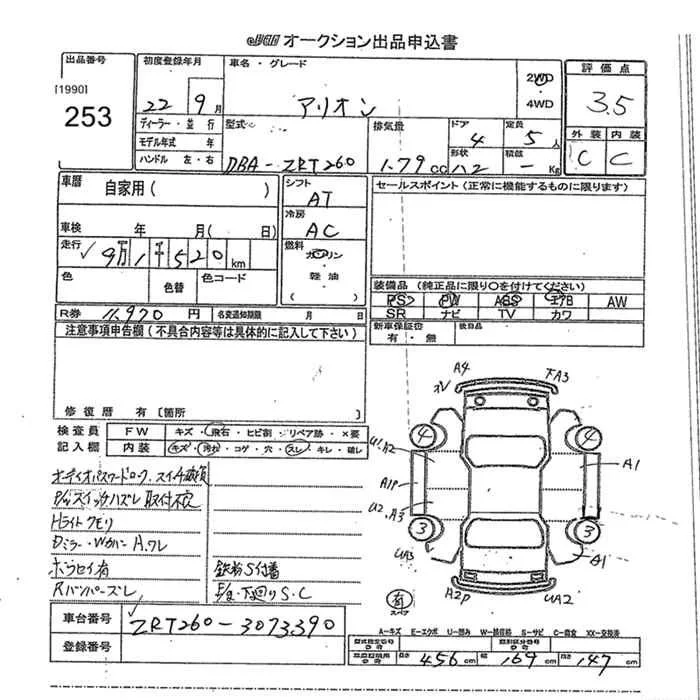 JU オークション出品申込書
出品番号 初度登録年月 車名・グレード 2WD 評価点
[1990] 22 9月 アリオン ・4WD 3.5
253 ディーラー・並行 型式 排気量 ドア 4 定員 5人 外装 内装
モデル年式 年 C C
ハンドル 左・右 DBA-ZRT260 1.79cc 形状 ハ2 積載 - Kg
車歴 自家用( ) シフト AT セールスポイント(正常に機能するものに限ります)
車検 年 月( 日) 冷房 AC
走行 9万1千520km 燃料 ガソリン
色 色替 色コード 軽油
( )
装備品(純正品に限り○を付けてください)
PS PW ABS エアB AW
R券 11,970円 名変通知期限 月 日 SR ナビ TV カワ
注意事項申告欄(不具合内容等は具体的に記入して下さい) 新車保証書 後日品
有・無
修復歴 有[箇所 ]
検査員 FW キズ・飛石・ヒビ割・リペア跡・×要
記入欄 内装 キズ・汚れ・コゲ・穴・スレ・キレ・破レ
A4 下A3
4 4
U1,A2 A1
A1P
U2,A3
3 3
UA3 A1
A2P UA2
有
スペア
オーディオパスワードロック、スイッチ破損
P/Wスイッチハズレ取付不良
Hライトクモリ
Dミラー・WカバーA,ワレ
ホラセイ有 鉄粉S付着
Rバンパーズレ F/R・下廻りS.C
車台番号 ZRT260-3073390
登録番号
A-キズ E-エクボ U-凹み W-補修跡 S-サビ C-腐食 XX-交換済
長さ 456cm 幅 169cm 高さ 147cm